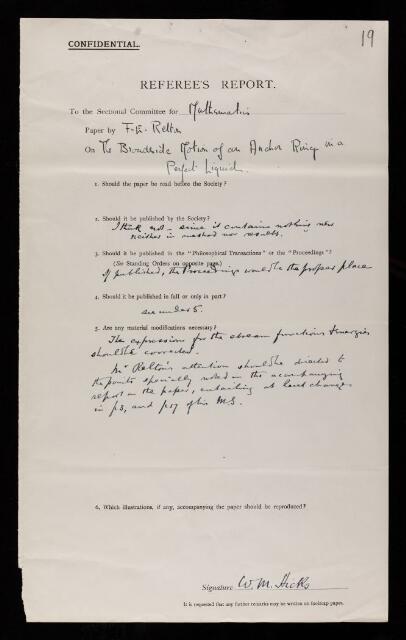 CONFIDENTIAL.
19
REFEREE'S REPORT.
To the Sectional Committee for Mathematics
Paper by F.E. Relton
On The Broadside Motion of an Anchor Ring in a
Perfect Liquid.
1. Should the paper be read before the Society?
2. Should it be published by the Society?
I think not – since it contains nothing new
neither in method nor results.
3. Should it be published in the "Philosophical Transactions" or the "Proceedings"?
(See Standing Orders on opposite page.)
If published, the Proceedings would be the proper place
4. Should it be published in full or only in part?
see under 5.
5. Are any material modifications necessary?
The expressions for the stream functions & energies
should be corrected.
Mr Relton's attention should be directed to
the points specially noted in the accompanying
report on the paper, entailing at least changes
in p3, and p17 of his M.S.
6. Which illustrations, if any, accompanying the paper should be reproduced?
Signature W. M. Hicks
It is requested that any further remarks may be written on foolscap paper.